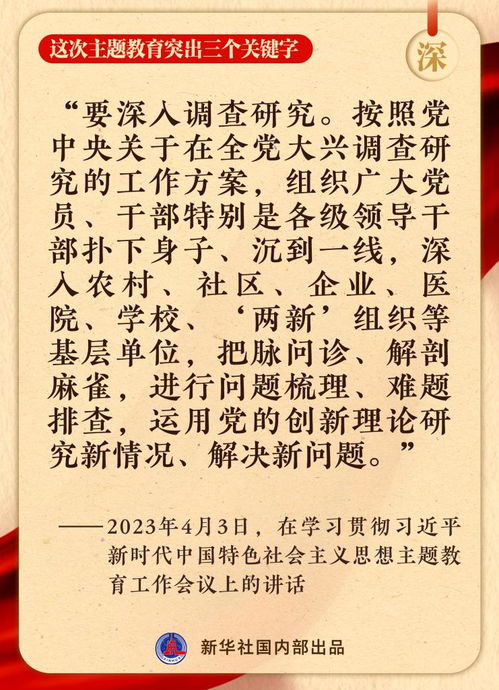 这次主题教育突出三个关键字
深
“要深入调查研究。按照党
中央关于在全党大兴调查研
究的工作方案，组织广大党
员、干部特别是各级领导干
部扑下身子、沉到一线，深
入农村、社区、企业、医
院、学校、‘两新’组织等
基层单位，把脉问诊、解剖
麻雀，进行问题梳理、难题
排查，运用党的创新理论研
究新情况、解决新问题。”
——2023年4月3日，在学习贯彻习近平
新时代中国特色社会主义思想主题教
育工作会议上的讲话
新华社国内部出品